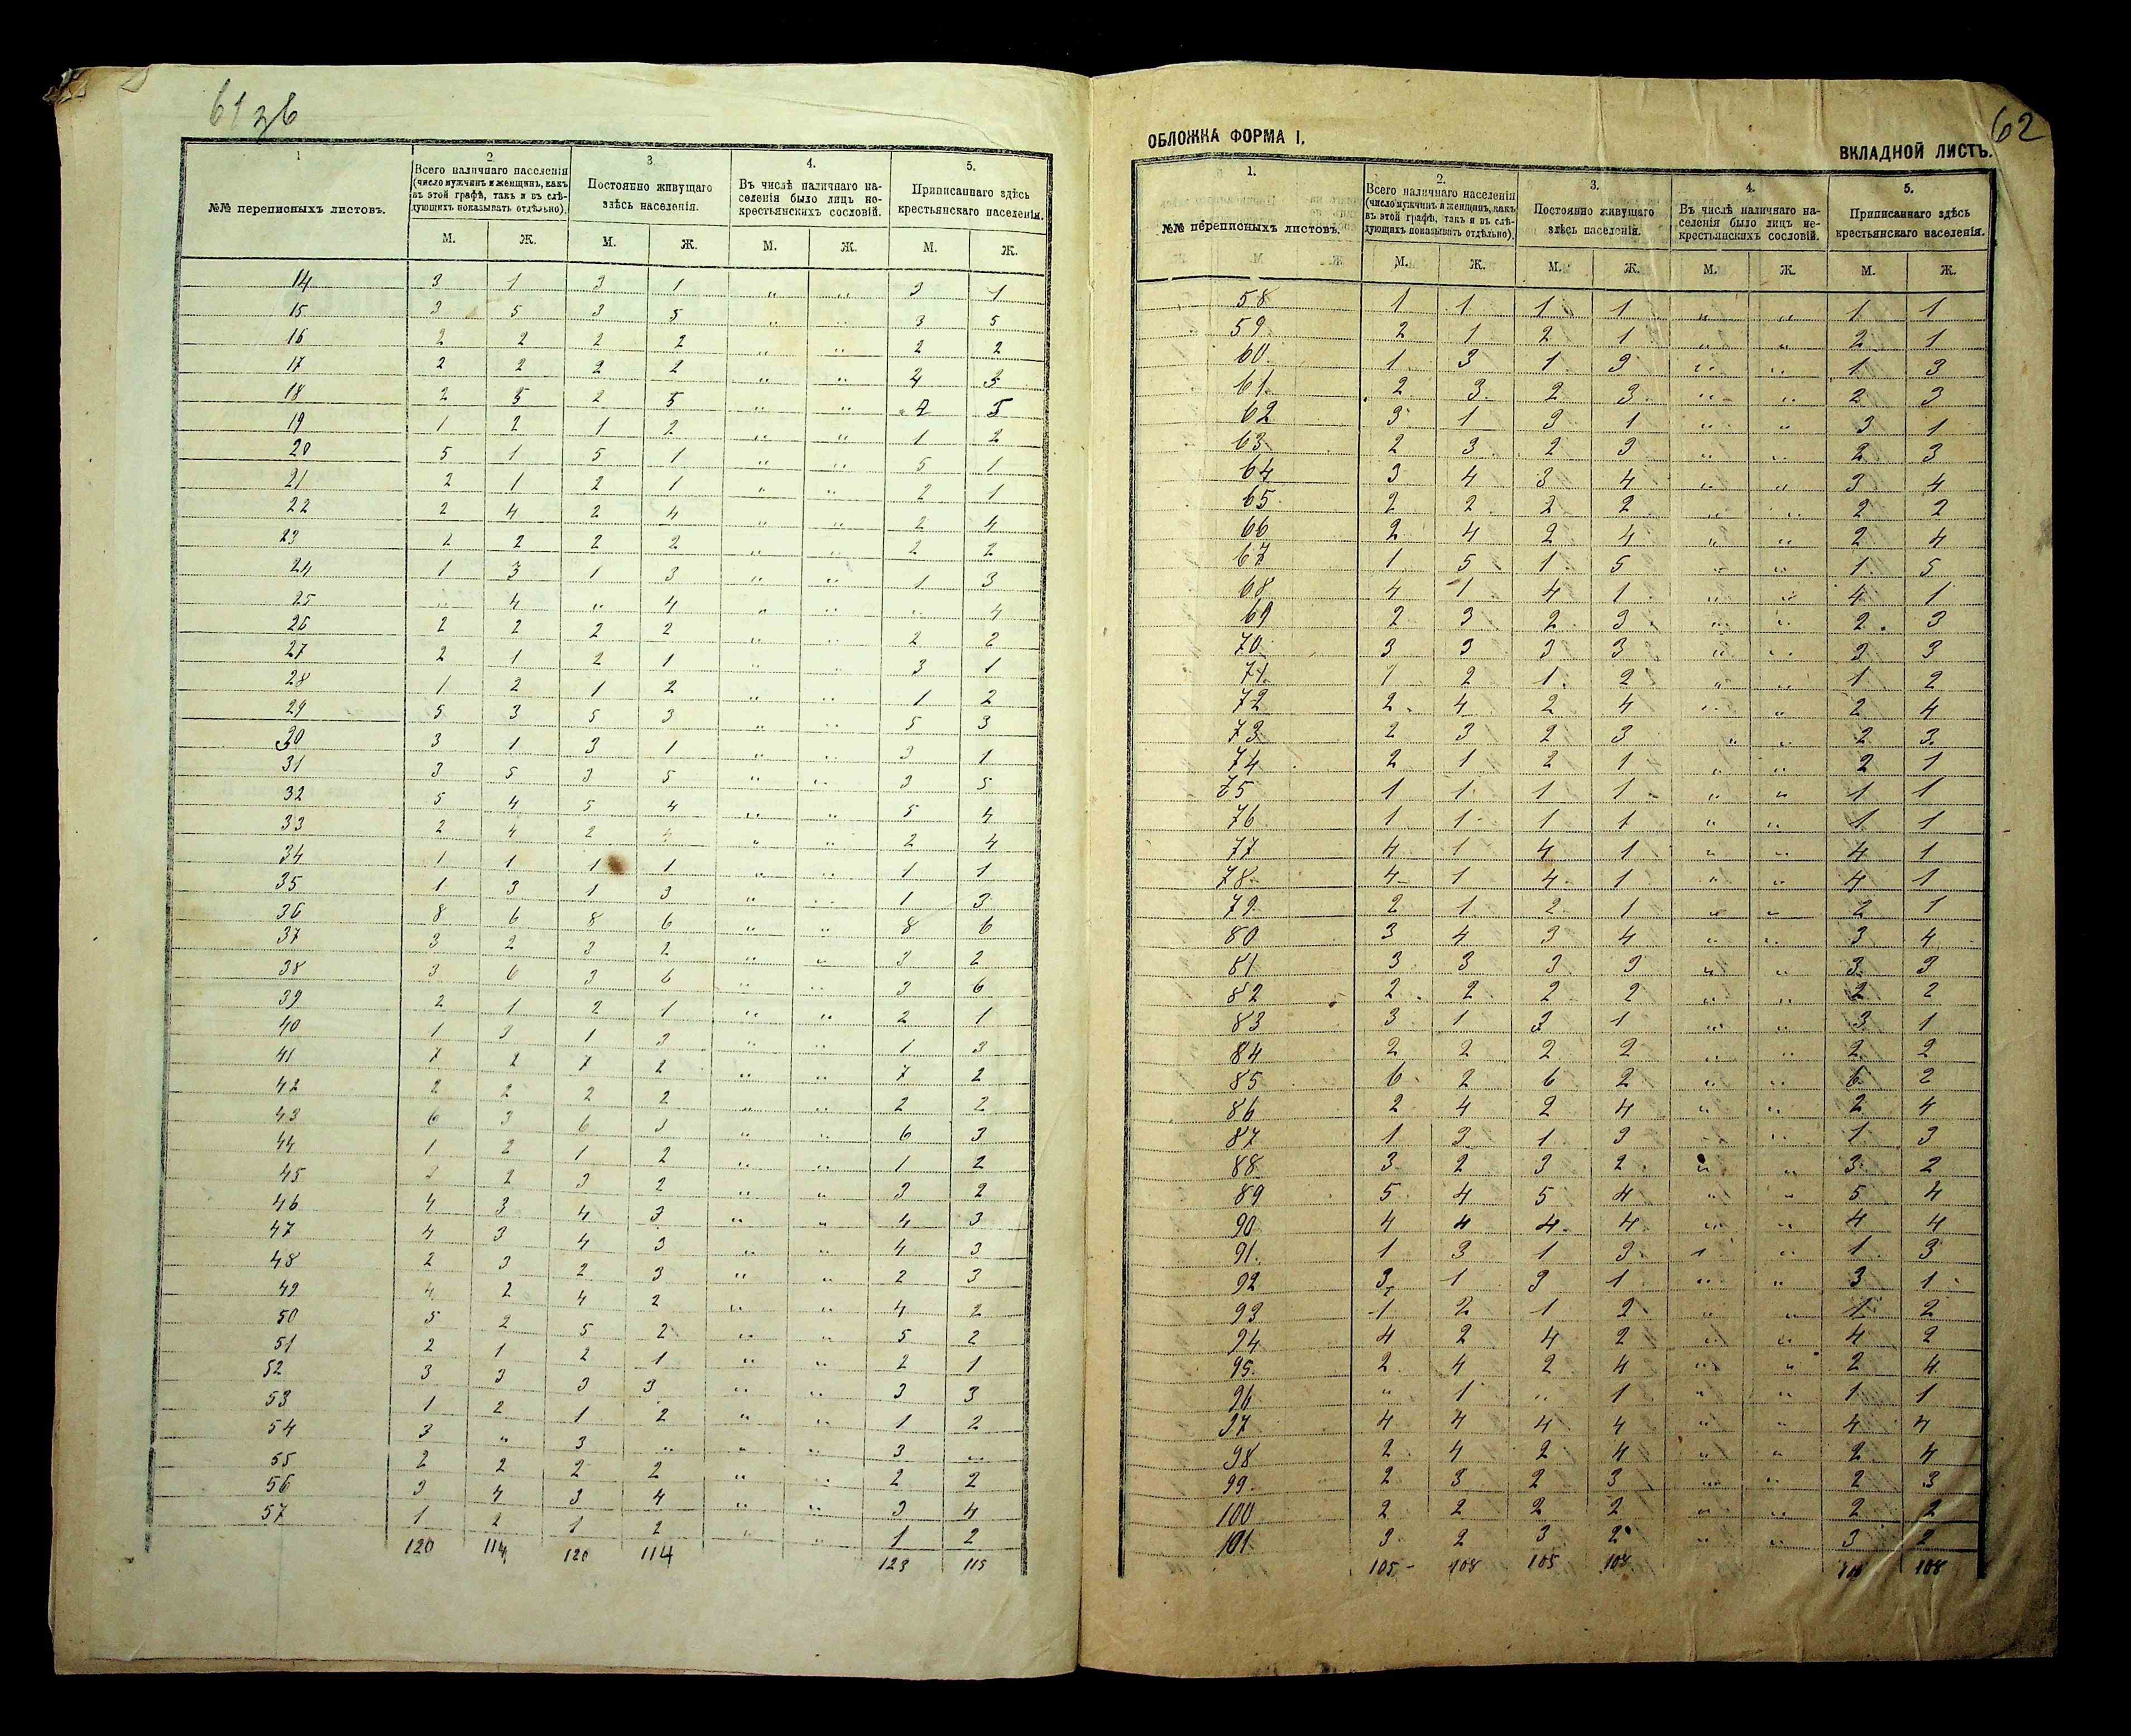 61 зв
1
2
3
4.
5.
№№ переписныхъ листовъ.
Всего наличнаго населенія (число мужчинъ и женщинъ, какъ въ этой графѣ, такъ и въ слѣдующихъ показывать отдѣльно).
Постоянно живущаго здѣсь населенія.
Въ числѣ наличнаго населенія было лицъ некрестьянскихъ сословій.
Приписаннаго здѣсь крестьянскаго населенія.
М. Ж. М. Ж. М. Ж. М. Ж.
14 3 1 3 1 „ „ 3 1
15 3 5 3 5 „ „ 3 5
16 2 2 2 2 „ „ 2 2
17 2 2 2 2 „ „
18 2 5 2 5 „ „ 5
19 1 2 1 2 „ „ 1 2
20 5 1 5 1 „ „ 5 1
21 2 1 2 1 „ „ 2 1
22 2 4 2 4 „ „ 2 4
23 2 2 2 2 „ „ 2 2
24 1 3 1 3 „ „ 1 3
25 „ 4 „ 4 „ „ „ 4
26 2 2 2 2 „ „ 2 2
27 2 1 2 1 „ „ 3 1
28 1 2 1 2 „ „ 1 2
29 5 3 5 3 „ „ 5 3
30 3 1 3 1 „ „ 3 1
31 3 5 3 5 „ „ 3 5
32 5 4 5 4 „ „ 5 4
33 2 4 2 4 „ „ 2 4
34 1 1 1 1 „ „ 1 1
35 1 3 1 3 „ „ 1 3
36 8 6 8 6 „ „ 8 6
37 3 2 3 2 „ „ 3 2
38 3 6 3 6 „ „ 3 6
39 2 1 2 1 „ „ 2 1
40 1 3 1 3 „ „ 1 3
41 7 2 7 2 „ „ 7 2
42 2 2 2 2 „ „ 2 2
43 6 3 6 3 „ „ 6 3
44 1 2 1 2 „ „ 1 2
45 2 3 2 „ „ 3 2
46 4 3 4 3 „ „ 4 3
47 4 3 4 3 „ „ 4 3
48 2 3 2 3 „ „ 2 3
49 4 2 4 2 „ „ 4 2
50 5 2 5 2 „ „ 5 2
51 2 1 2 1 „ „ 2 1
52 3 3 3 3 „ „ 3 3
53 1 2 1 2 „ „ 1 2
54 3 „ 3 „ „ „ 3 „
55 2 2 2 2 „ „ 2 2
56 3 4 3 4 „ „ 3 4
57 1 2 1 2 „ „ 1 2
120 114 120 114 123 115
62
ОБЛОЖКА ФОРМА I.
ВКЛАДНОЙ ЛИСТЪ.
1.
2.
3.
4.
5.
№№ переписныхъ листовъ.
Всего наличнаго населенія (число мужчинъ и женщинъ, какъ въ этой графѣ, такъ и въ слѣдующихъ показывать отдѣльно).
Постоянно живущаго здѣсь населенія.
Въ числѣ наличнаго населенія было лицъ некрестьянскихъ сословій.
Приписаннаго здѣсь крестьянскаго населенія.
М. Ж. М. Ж. М. Ж. М. Ж.
58 1 1 1 1 „ „ 1 1
59 2 1 2 1 „ „ 2 1
60 1 3 1 3 „ „ 1 3
61 2 3 2 3 „ „ 2 3
62 3 1 3 1 „ „ 3 1
63 2 3 2 3 „ „ 2 3
64 3 4 3 4 „ „ 3 4
65 2 2 2 2 „ „ 2 2
66 2 4 2 4 „ „ 2 4
67 1 5 1 5 „ „ 1 5
68 4 1 4 1 „ „ 4 1
69 2 3 2 3 „ „ 2 3
70 3 3 3 3 „ „ 3 3
71 1 2 1 2 „ „ 1 2
72 2 4 2 4 „ „ 2 4
73 2 3 2 3 „ „ 2 3
74 2 1 2 1 „ „ 2 1
75 1 1 1 1 „ „ 1 1
76 1 1 1 1 „ „ 1 1
77 4 1 4 1 „ „ 4 1
78 4 1 4 1 „ „ 4 1
79 2 1 2 1 „ „ 2 1
80 3 4 3 4 „ „ 3 4
81 3 3 3 3 „ „ 3 3
82 2 2 2 2 „ „ 2 2
83 3 1 3 1 „ „ 3 1
84 2 2 2 2 „ „ 2 2
85 6 2 6 2 „ „ 6 2
86 2 4 2 4 „ „ 2 4
87 1 3 1 3 „ „ 1 3
88 3 2 3 2 „ „ 3 2
89 5 4 5 4 „ „ 5 4
90 4 4 4 4 „ „ 4 4
91 1 3 1 3 „ „ 1 3
92 3 1 3 1 „ „ 3 1
93 1 2 1 2 „ „ 1 2
94 4 2 4 2 „ „ 4 2
95 2 4 2 4 „ „ 2 4
96 „ 1 „ 1 „ „ 1 1
97 4 4 4 4 „ „ 4 4
98 2 4 2 4 „ „ 2 4
99 2 3 2 3 „ „ 2 3
100 2 2 2 2 „ „ 2 2
101 3 2 3 2 „ „ 3 2
105 108 105 108 108